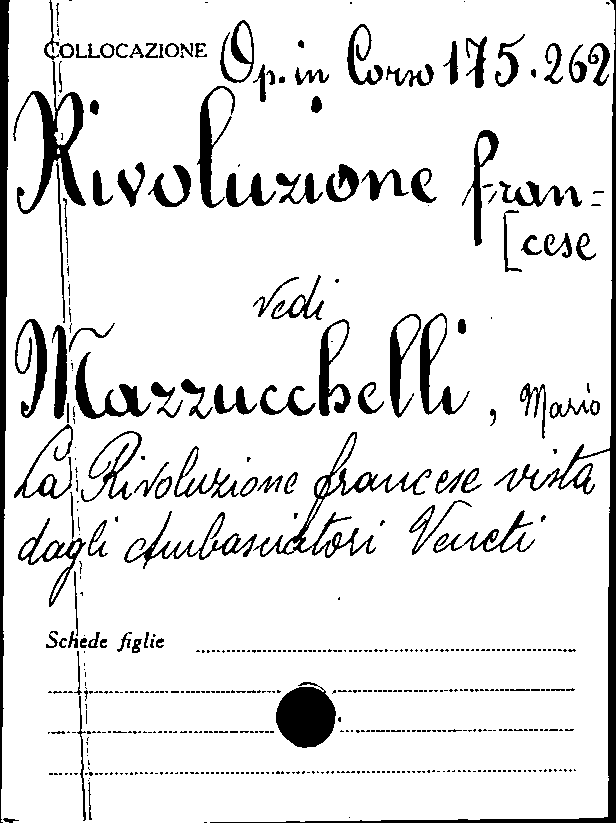 COLLOCAZIONE Op. in Corso 175.262
Rivoluzione fran=
[cese
vedi
Mazzucchelli, Mario
La Rivoluzione francese vista
dagli Ambasciatori Veneti
Schede figlie